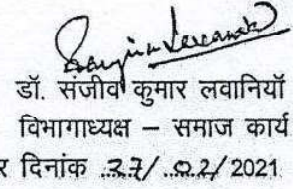 डॉ. संजीव कुमार लवानियाँ
विभागाध्यक्ष – समाज कार्य
र दिनांक 27/02/2021